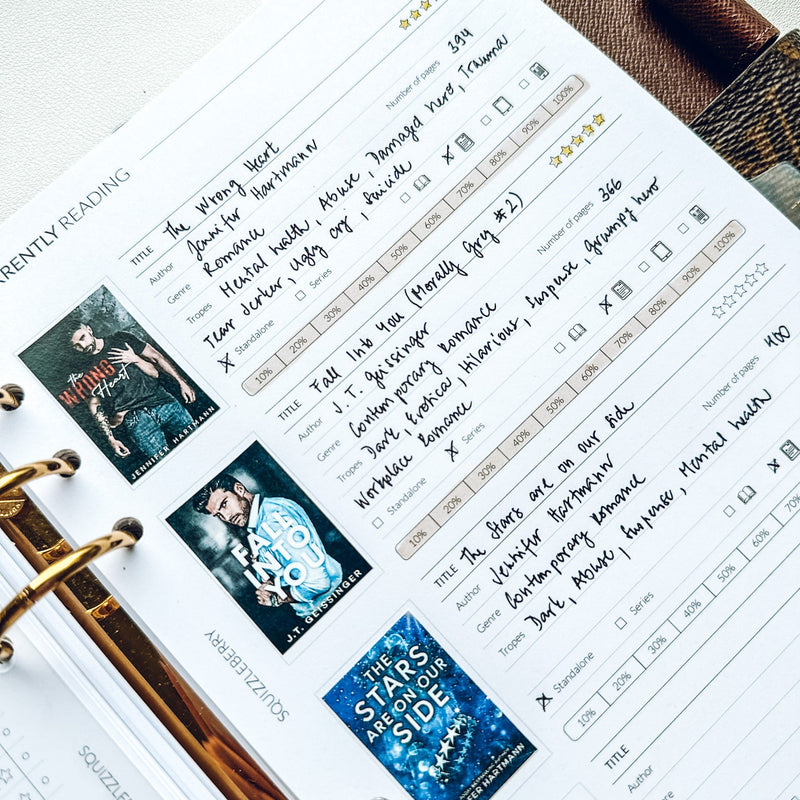 RENTLY READING
TITLE The Wrong Heart
Author Jennifer Hartmann
Genre Romance
Number of pages 394
Tropes Mental health, Abuse, Damaged hero, Trauma
Tear Jerker, Ugly cry, Suicide
Standalone Series
10% 20% 30% 40% 50% 60% 70% 80% 90% 100%
the
WRONG
Heart
JENNIFER HARTMANN
TITLE Fall Into You (Morally Grey #2)
Author J.T. Geissinger
Genre Contemporary Romance
Number of pages 366
Tropes Dark Erotica, Hilarious, Suspense, grumpy hero
Workplace Romance
Standalone Series
10% 20% 30% 40% 50% 60% 70% 80% 90% 100%
FALL
INTO
YOU
J.T. GEISSINGER
TITLE The Stars are on our side
Author Jennifer Hartmann
Genre Contemporary Romance
Number of pages 400
Tropes Dark, Abuse, Suspense, Mental health
Standalone Series
10% 20% 30% 40% 50% 60% 70%
THE
STARS
ARE ON OUR
SIDE
FER HARTMANN
TITLE
Author
SQUIZZLEBERRY
SQUIZZLE